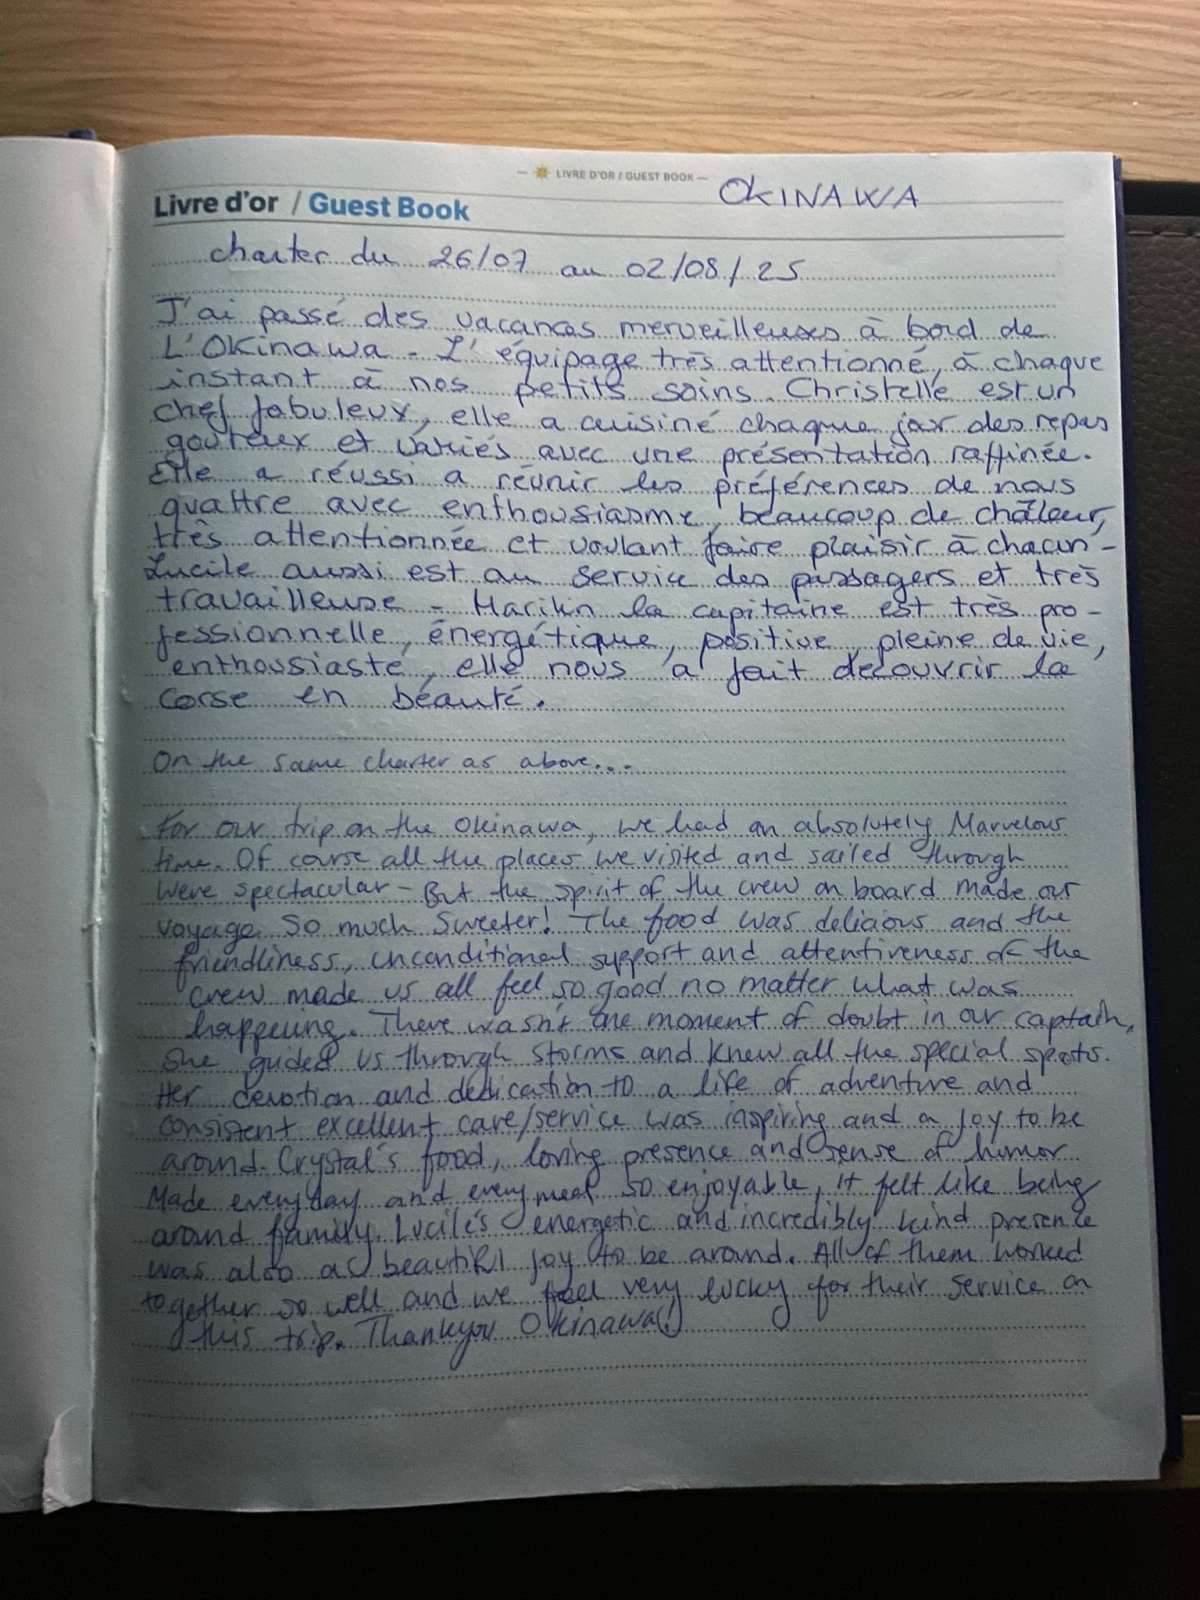 LIVRE D'OR / GUEST BOOK
Livre d'or / Guest Book OKINAWA
charter du 26/07 au 02/08/25
J'ai passé des vacances merveilleuses à bord de
L'OKinawa - L'équipage très attentionné, à chaque
instant à nos petits soins. Christelle est un
chef fabuleux, elle a cuisiné chaque jor des repas
gouteux et variés avec une présentation raffinée.
Elle a réussi a réunir les préférences de nous
quattre avec enthousiasme, beaucoup de chaleur,
très attentionnée et voulant faire plaisir à chacun -
Lucile aussi est au service des passagers et très
travailleuse - Marikn la capitaine est très pro-
fessionnelle, énergétique, positive, pleine de vie,
enthousiaste, elle nous a fait découvrir la
Corse en béauté.
On the same charter as above...
For our trip on the Okinawa, we had an absolutely Marvelous
time. Of course all the places we visited and sailed through
were spectacular - But the spirit of the crew on board made our
voyage so much sweeter! The food was delicious and the
friendliness, unconditional support and attentiveness of the
crew made us all feel so good no matter what was
happening. There wasn't one moment of doubt in our captain,
she guided us through storms and knew all the special spots.
Her devotion and dedication to a life of adventure and
consistent excellent care/service was inspiring and a joy to be
around. Crystal's food, loving presence and sense of humor
Made every day and every meal so enjoyable, it felt like being
around family. Lucile's energetic and incredibly kind presence
was also a beautiful joy to be around. All of them worked
together so well and we feel very lucky for their service on
this trip. Thankyou Okinawa!